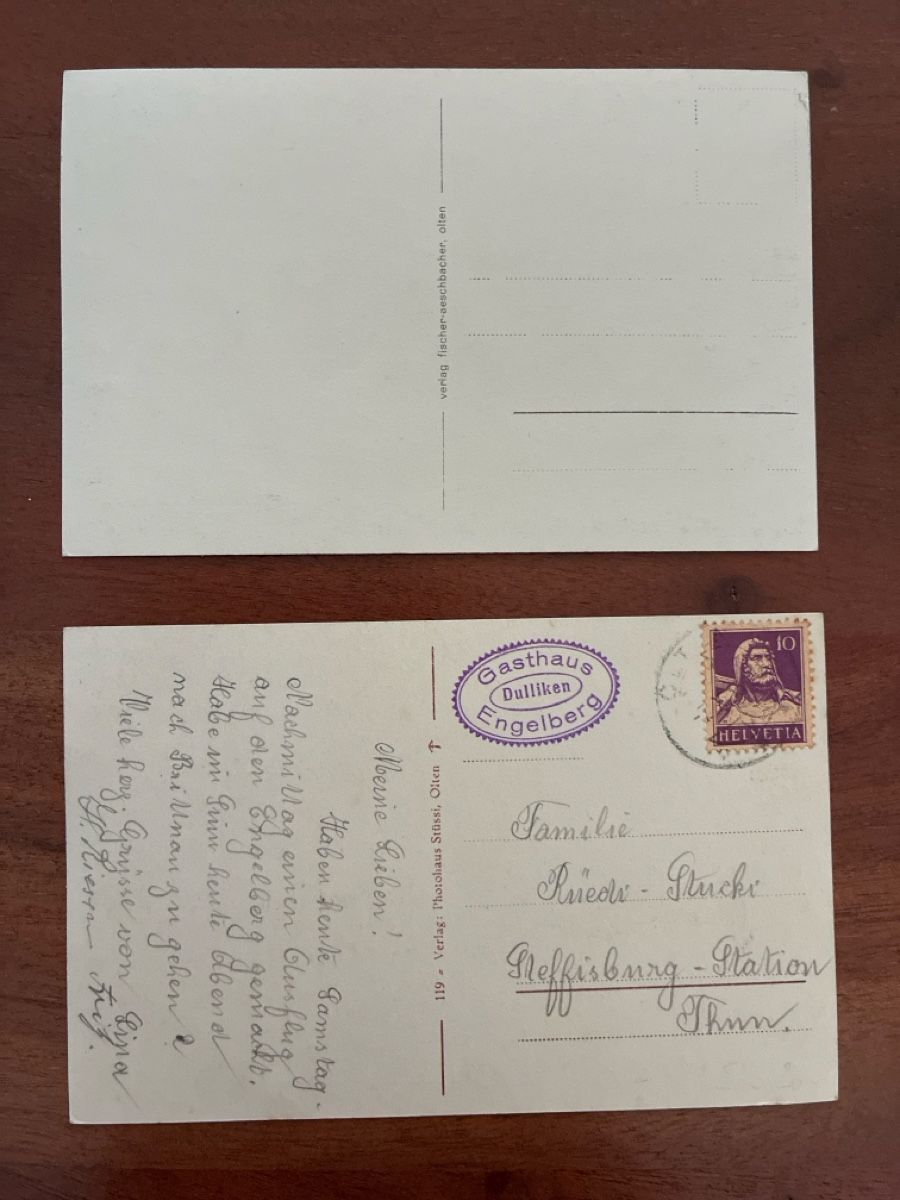 verlag fischer-aeschbacher, olten
Meine Lieben!
Haben heute Samstag-
Nachmittag einen Ausflug
auf den Engelberg gemacht.
Habe im Sinn heute Abend
nach Brittnau zu gehen
Viele herz. Grüsse von
119 - Verlag: Photohaus Stüssi, Olten
Gasthaus
Dulliken
Engelberg
10
HELVETIA
Familie
Rüedi-Stucki
Steffisburg-Station
Thun.